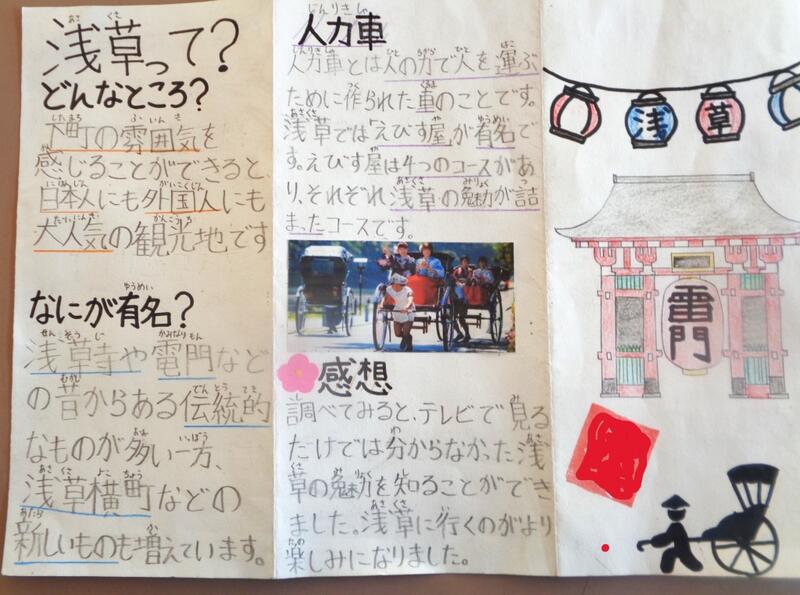 浅草って？
どんなところ？
下町の雰囲気を
感じることができると、
日本人にも外国人にも
大人気の観光地です
なにが有名？
浅草寺や電門など
の昔からある伝統的
なものが多い一方、
浅草横町などの
新しいものも増えています。
人力車
人力車とは人の力で人を運ぶ
ために作られた車のことです。
浅草では「えびす屋」が有名で
す。えびす屋は4つのコースがあ
り、それぞれ浅草の魅力が詰
まったコースです。
感想
調べてみると、テレビで見る
だけでは分からなかった浅
草の魅力を知ることができ
ました。浅草に行くのがより
楽しみになりました。
浅草
雷門